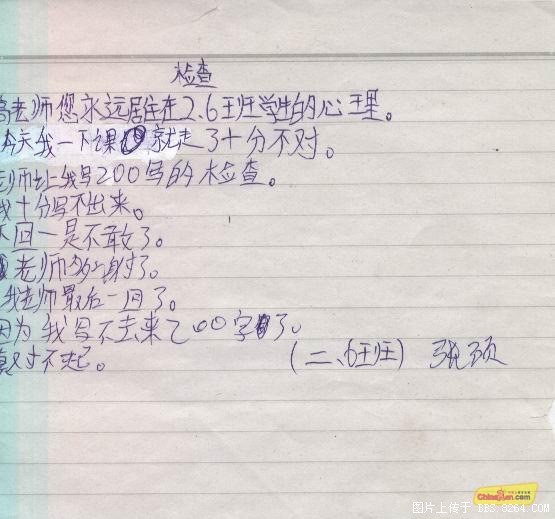 检查
高老师您永远居住在2.6班学生的心理。
今天我一下课就走了十分不对。
老师让我写200写的检查。
我十分写不出来。
下回一是不敢了。
老师多谢了。
我老师最后一回了。
因为我写不去来200字了。
对不起。
(二、6班) 张
ChinaRen.com
图片上传于 BBS.8264.com